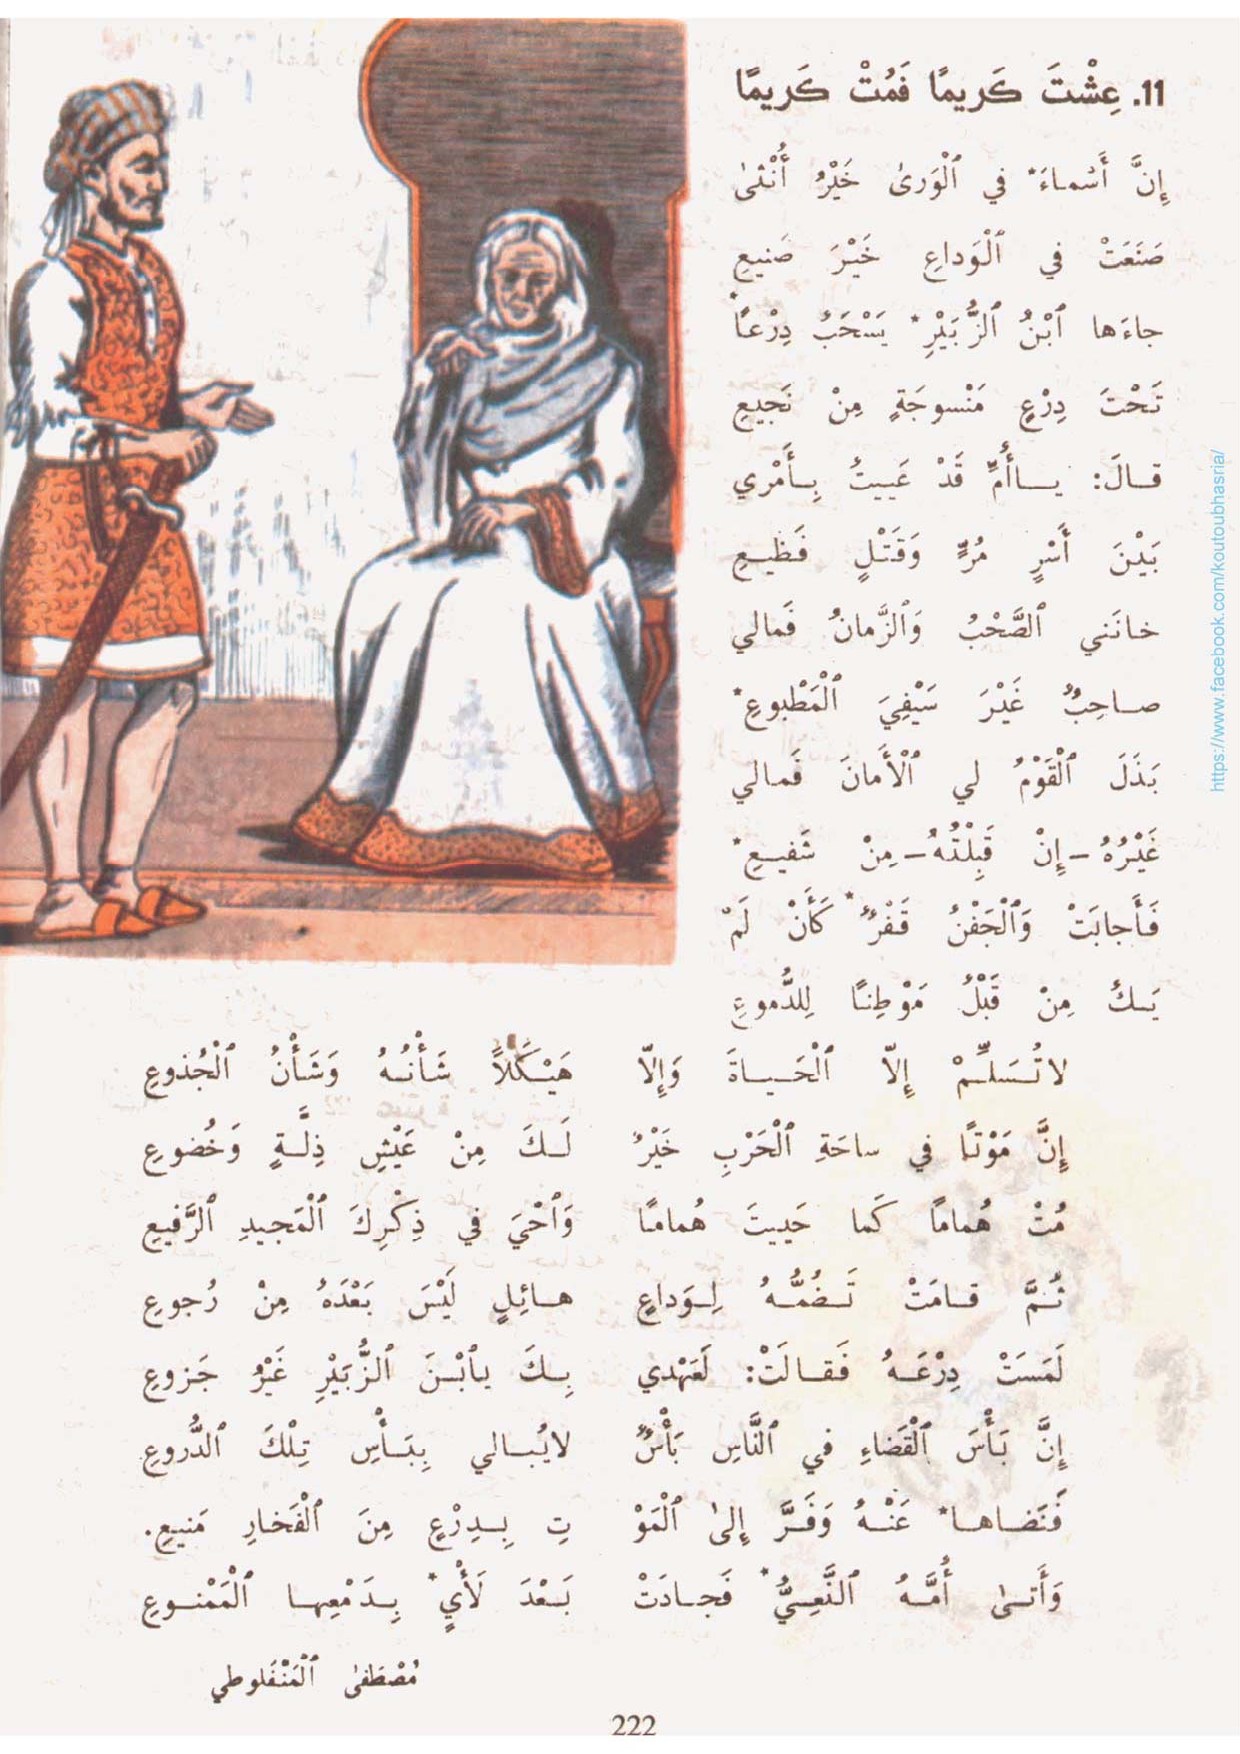 11. عِشْتَ كَريمًا فَمُتْ كَريمًا
إِنَّ أَسْماءَ* في ٱلْوَرىٰ خَيْرُ أُنْثىٰ
صَنَعَتْ في ٱلْوَداعِ خَيْرَ صَنيعِ
جاءَها ٱبْنُ ٱلزُّبَيْرِ* يَسْحَبُ دِرْعاً*
تَحْتَ دِرْعٍ مَنْسوجَةٍ مِنْ نَجيعِ
قالَ: يا أُمِّ قَدْ عَيِيتُ بِأَمْري
بَيْنَ أَسْرٍ مُرٍّ وَقَتْلٍ فَظيعِ
خانَني ٱلصَّحْبُ وَٱلزَّمانُ فَمالي
صاحِبٌ غَيْرَ سَيْفِيَ ٱلْمَطْبوعِ*
بَذَلَ ٱلْقَوْمُ لي ٱلْأَمانَ فَمالي
غَيْرُهُ - إِنْ قَبِلْتُهُ - مِنْ شَفيعِ*
فَأَجابَتْ وَٱلْجَفْنُ قَفْرٌ* كَأَنْ لَمْ
يَكُ مِنْ قَبْلُ مَوْطِنًا لِلدُّموعِ
لا تُسَلِّمْ إِلاّ ٱلْحَياةَ وَإِلاّ هَيْكَلاً شَأْنُهُ وَشَأْنُ ٱلْجُذوعِ
إِنَّ مَوْتًا في ساحَةِ ٱلْحَرْبِ خَيْرٌ لَكَ مِنْ عَيْشِ ذِلَّةٍ وَخُضوعِ
مُتْ هُمامًا كَما حَيِيتَ هُمامًا وَٱحْيَ في ذِكْرِكَ ٱلْمَجيدِ ٱلرَّفيعِ
ثُمَّ قامَتْ تَضُمُّهُ لِوَداعٍ هائِلٍ لَيْسَ بَعْدَهُ مِنْ رُجوعِ
لَمَسَتْ دِرْعَهُ فَقالَتْ: لَعَهْدي بِكَ يا ٱبْنَ ٱلزُّبَيْرِ غَيْرُ جَزوعِ
إِنَّ بَأْسَ ٱلْقَضاءِ في ٱلنَّاسِ بَأْسٌ لا يُبالي بِبَأْسِ تِلْكَ ٱلدُّروعِ
فَنَضاها* عَنْهُ وَفَرَّ إِلىٰ ٱلْمَوْ تِ بِدِرْعٍ مِنَ ٱلْفَخارِ مَنيعِ.
وَأَتىٰ أُمَّهُ ٱلنَّعِيُّ* فَجادَتْ بَعْدَ لَأْيٍ* بِدَمْعِها ٱلْمَمْنوعِ
مُصْطَفىٰ ٱلْمَنْفَلوطي
222
https://www.facebook.com/koutoubhasria/